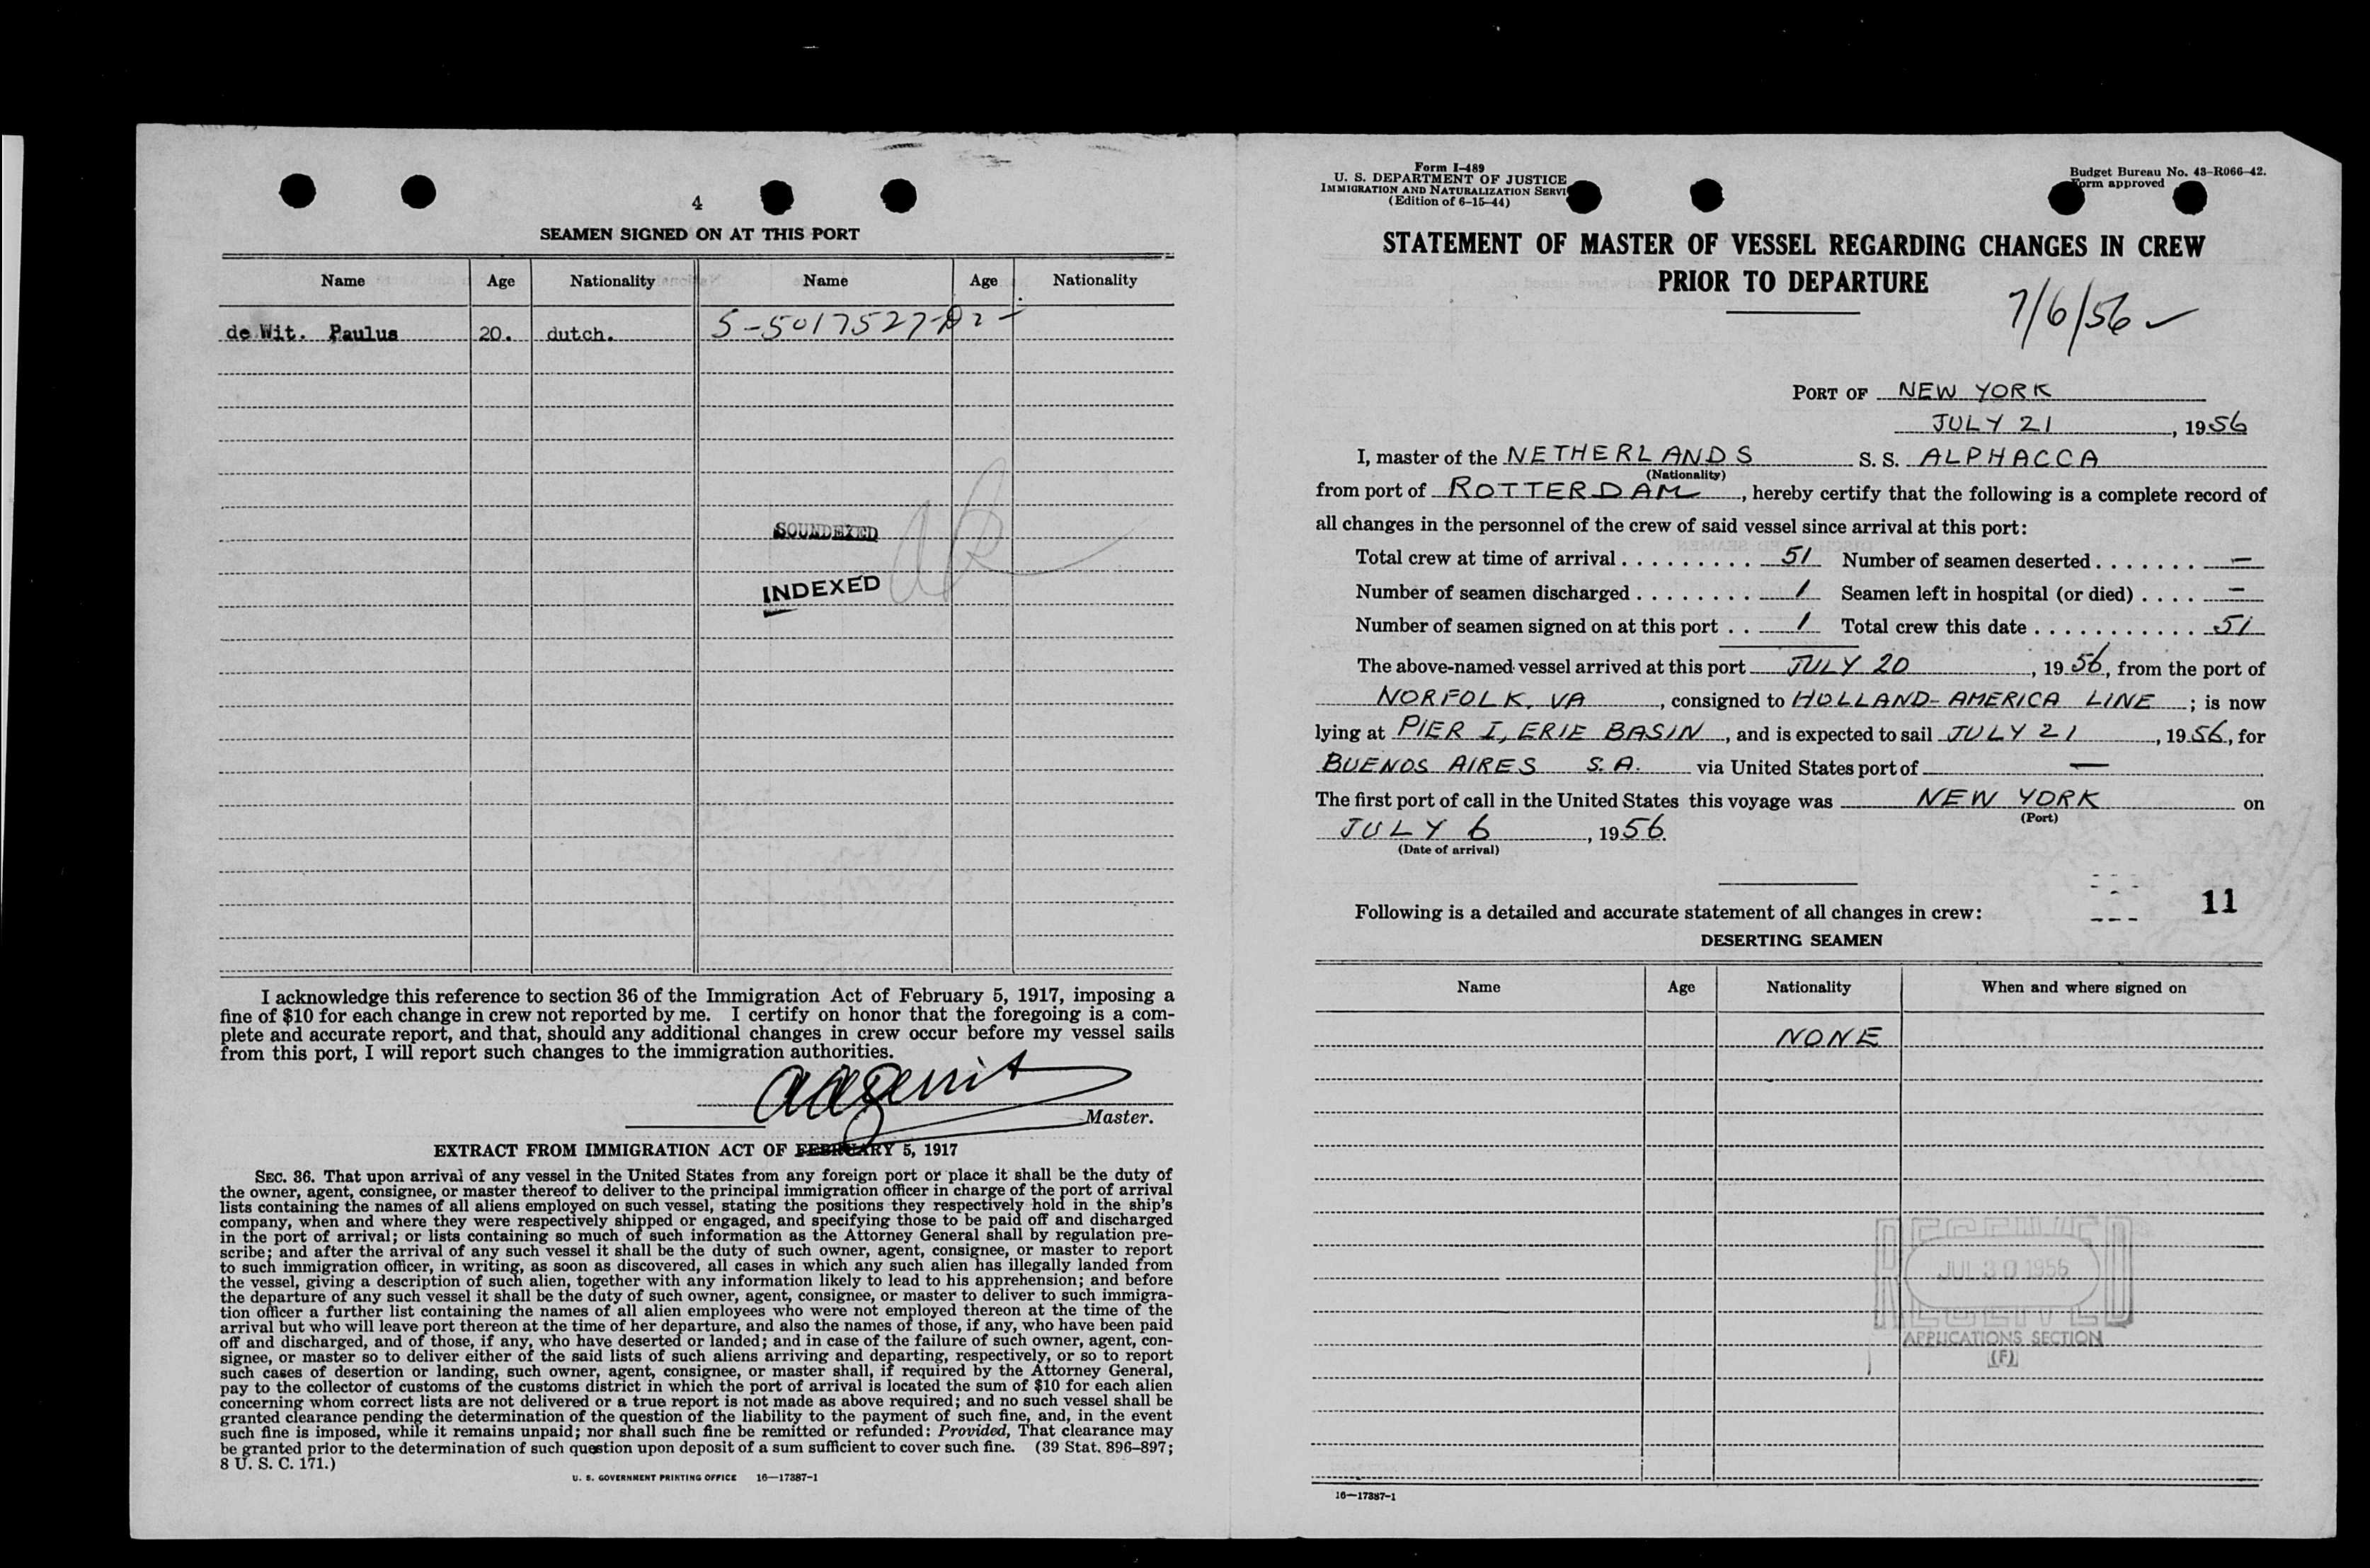 4
SEAMEN SIGNED ON AT THIS PORT
Name Age Nationality Name Age Nationality
de Wit. Paulus 20. dutch. S-5017527
SOUNDEXED
INDEXED
I acknowledge this reference to section 36 of the Immigration Act of February 5, 1917, imposing a
fine of $10 for each change in crew not reported by me. I certify on honor that the foregoing is a com-
plete and accurate report, and that, should any additional changes in crew occur before my vessel sails
from this port, I will report such changes to the immigration authorities.
Master.
EXTRACT FROM IMMIGRATION ACT OF FEBRUARY 5, 1917
SEC. 36. That upon arrival of any vessel in the United States from any foreign port or place it shall be the duty of
the owner, agent, consignee, or master thereof to deliver to the principal immigration officer in charge of the port of arrival
lists containing the names of all aliens employed on such vessel, stating the positions they respectively hold in the ship's
company, when and where they were respectively shipped or engaged, and specifying those to be paid off and discharged
in the port of arrival; or lists containing so much of such information as the Attorney General shall by regulation pre-
scribe; and after the arrival of any such vessel it shall be the duty of such owner, agent, consignee, or master to report
to such immigration officer, in writing, as soon as discovered, all cases in which any such alien has illegally landed from
the vessel, giving a description of such alien, together with any information likely to lead to his apprehension; and before
the departure of any such vessel it shall be the duty of such owner, agent, consignee, or master to deliver to such immigra-
tion officer a further list containing the names of all alien employees who were not employed thereon at the time of the
arrival but who will leave port thereon at the time of her departure, and also the names of those, if any, who have been paid
off and discharged, and of those, if any, who have deserted or landed; and in case of the failure of such owner, agent, con-
signee, or master so to deliver either of the said lists of such aliens arriving and departing, respectively, or so to report
such cases of desertion or landing, such owner, agent, consignee, or master shall, if required by the Attorney General,
pay to the collector of customs of the customs district in which the port of arrival is located the sum of $10 for each alien
concerning whom correct lists are not delivered or a true report is not made as above required; and no such vessel shall be
granted clearance pending the determination of the question of the liability to the payment of such fine, and, in the event
such fine is imposed, while it remains unpaid; nor shall such fine be remitted or refunded: Provided, That clearance may
be granted prior to the determination of such question upon deposit of a sum sufficient to cover such fine. (39 Stat. 896–897;
8 U. S. C. 171.)
U. S. GOVERNMENT PRINTING OFFICE 16—17387-1
Form I-489
U. S. DEPARTMENT OF JUSTICE
IMMIGRATION AND NATURALIZATION SERVI
(Edition of 6-15-44)
Budget Bureau No. 43-R066-42.
Form approved
STATEMENT OF MASTER OF VESSEL REGARDING CHANGES IN CREW
PRIOR TO DEPARTURE
7/6/56
PORT OF NEW YORK
JULY 21, 1956
I, master of the NETHERLANDS S. S. ALPHACCA
(Nationality)
from port of ROTTERDAM, hereby certify that the following is a complete record of
all changes in the personnel of the crew of said vessel since arrival at this port:
Total crew at time of arrival . . . . . . . . . 51 Number of seamen deserted . . . . . . . —
Number of seamen discharged . . . . . . . . 1 Seamen left in hospital (or died) . . . . —
Number of seamen signed on at this port . . 1 Total crew this date . . . . . . . . . . . 51
The above-named vessel arrived at this port JULY 20, 1956, from the port of
NORFOLK, VA, consigned to HOLLAND-AMERICA LINE; is now
lying at PIER I, ERIE BASIN, and is expected to sail JULY 21, 1956, for
BUENOS AIRES S.A. via United States port of —
The first port of call in the United States this voyage was NEW YORK on
(Port)
JULY 6, 1956.
(Date of arrival)
11
Following is a detailed and accurate statement of all changes in crew:
DESERTING SEAMEN
Name Age Nationality When and where signed on
NONE
RECEIVED
JUL 30 1956
RECEIVED
APPLICATIONS SECTION
(F)
16—17387-1